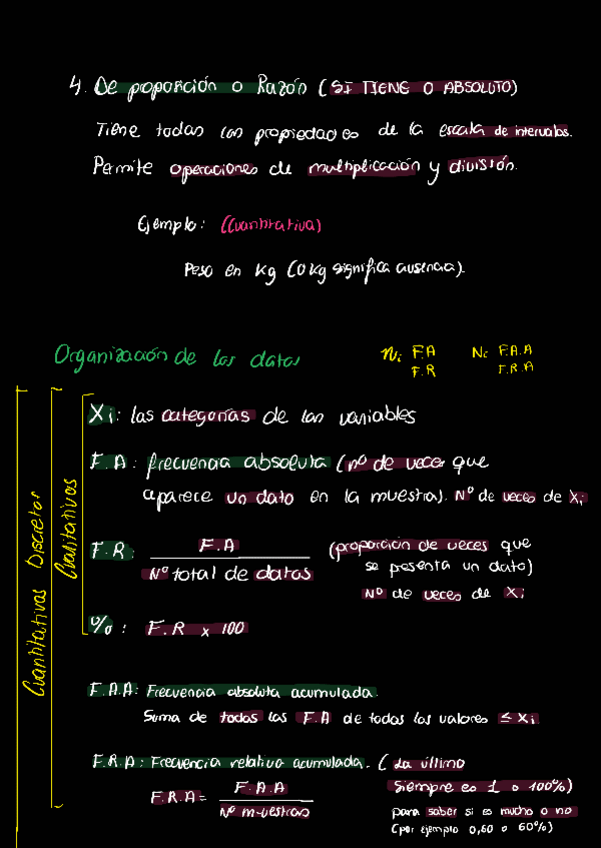 4. De proporción o Razón (SI TIENE O ABSOLUTO)
Tiene todas las propiedades de la escala de intervalos.
Permite operaciones de multiplicación y división.
Ejemplo: (Cuantitativa)
Peso en Kg (0 kg significa ausencia).
Organización de los datos
ni F.A
F.R
Ni F.A.A
F.R.A
Cuantitativas Discretas
Cualitativas
Xi: las categorías de las variables
F.A: frecuencia absoluta (nº de veces que
aparece un dato en la muestra). Nº de veces de Xi
F.R: F.A
Nº total de datos
(proporción de veces que
se presenta un dato)
Nº de veces de Xi
%: F.R x 100
F.A.A: Frecuencia absoluta acumulada.
Suma de todas las F.A de todos los valores ≤ Xi
F.R.A: Frecuencia relativa acumulada. (La última
siempre es 1 o 100%)
F.R.A = F.A.A
Nº muestras
para saber si es mucho o no
(por ejemplo 0,60 o 60%)